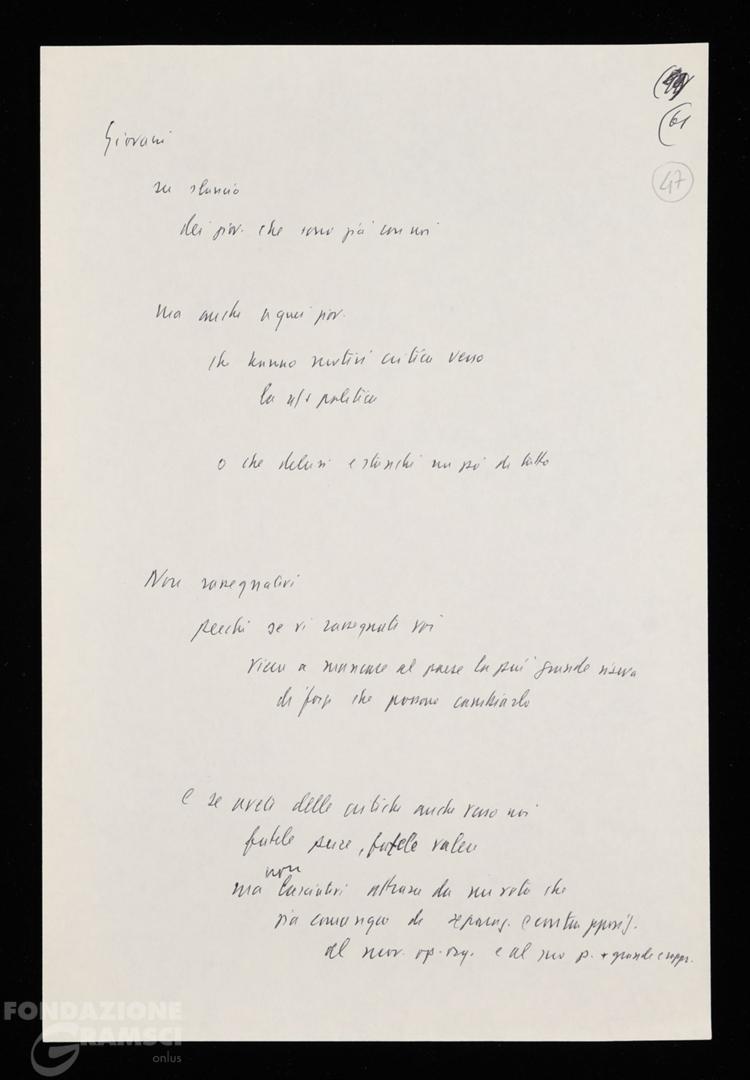 (61
47
Giovani
su slancio
dei giov. che sono già con noi
ma anche a quei giov.
che hanno motivi critica verso
la n/s politica
o che delusi e stanchi un pò di tutto
Non rassegnatevi
perché se vi rassegnate voi
viene a mancare al paese la più grande riserva
di forze che possono cambiarlo
e se avete delle critiche anche verso noi
fatele pure, fatele valere
non
ma lasciatevi attrarre da un voto che
sia comunque di separaz. e contrapposiz.
dal mov. op. org. e al suo p. + grande e rappr.
FONDAZIONE
GRAMSCI
onlus